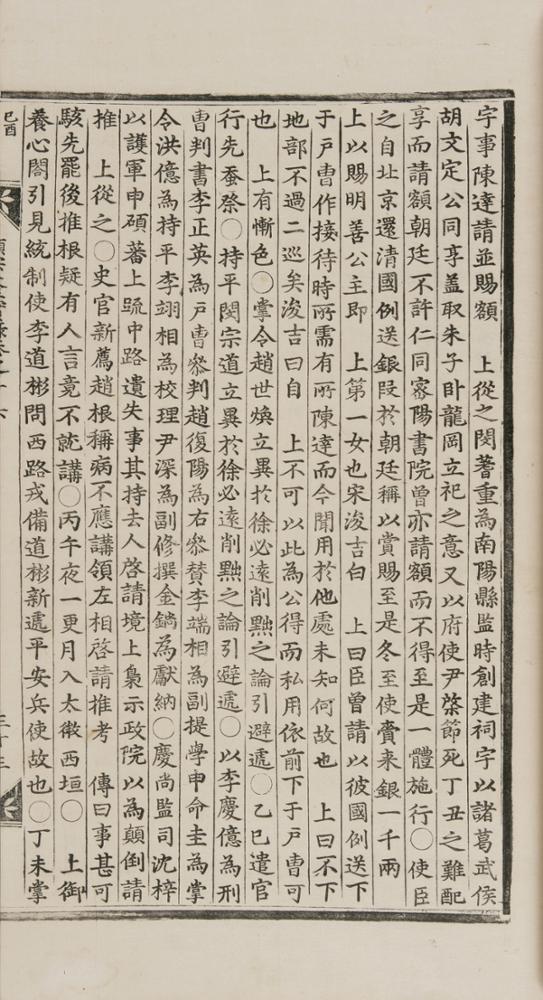 宇事陳達請並賜額　上從之閔著重為南陽縣監時創建祠宇以諸葛武侯
胡文定公同享蓋取朱子卧龍岡立祀之意又以府使尹棨節死丁丑之難配
享而請額朝廷不許仁同密陽書院曾亦請額而不得至是一體施行○使臣
之自北京還清國例送銀段於朝廷稱以賞賜至是冬至使賫来銀一千兩
上以賜明善公主即　上第一女也宋浚吉白　上曰臣曾請以彼國例送下
于戶曹作接待時所需有所陳達而今聞用於他處未知何故也　上曰不下
地部不過二巡矣浚吉曰自　上不可以此為公得而私用依前下于戶曹可
也　上有慚色○掌令趙世煥立異於徐必遠削黜之論引避遞○乙巳遣官
行先蚕祭○持平閔宗道立異於徐必遠削黜之論引避遞○以李慶億為刑
曹判書李正英為戶曹叅判趙復陽為右叅賛李端相為副提學申命圭為掌
令洪億為持平李翊相為校理尹深為副修撰金鏑為獻納○慶尚監司沈梓
以護軍申碩蕃上䟽中路遺失事其持去人啓請境上梟示政院以為顛倒請
推　上從之○史官新薦趙根稱病不應講領左相啓請推考　傳曰事甚可
駭先罷後推根疑有人言竟不就講○丙午夜一更月入太微西垣○　上御
養心閤引見統制使李道彬問西路戎備道彬新遞平安兵使故也○丁未掌
己酉
三十三